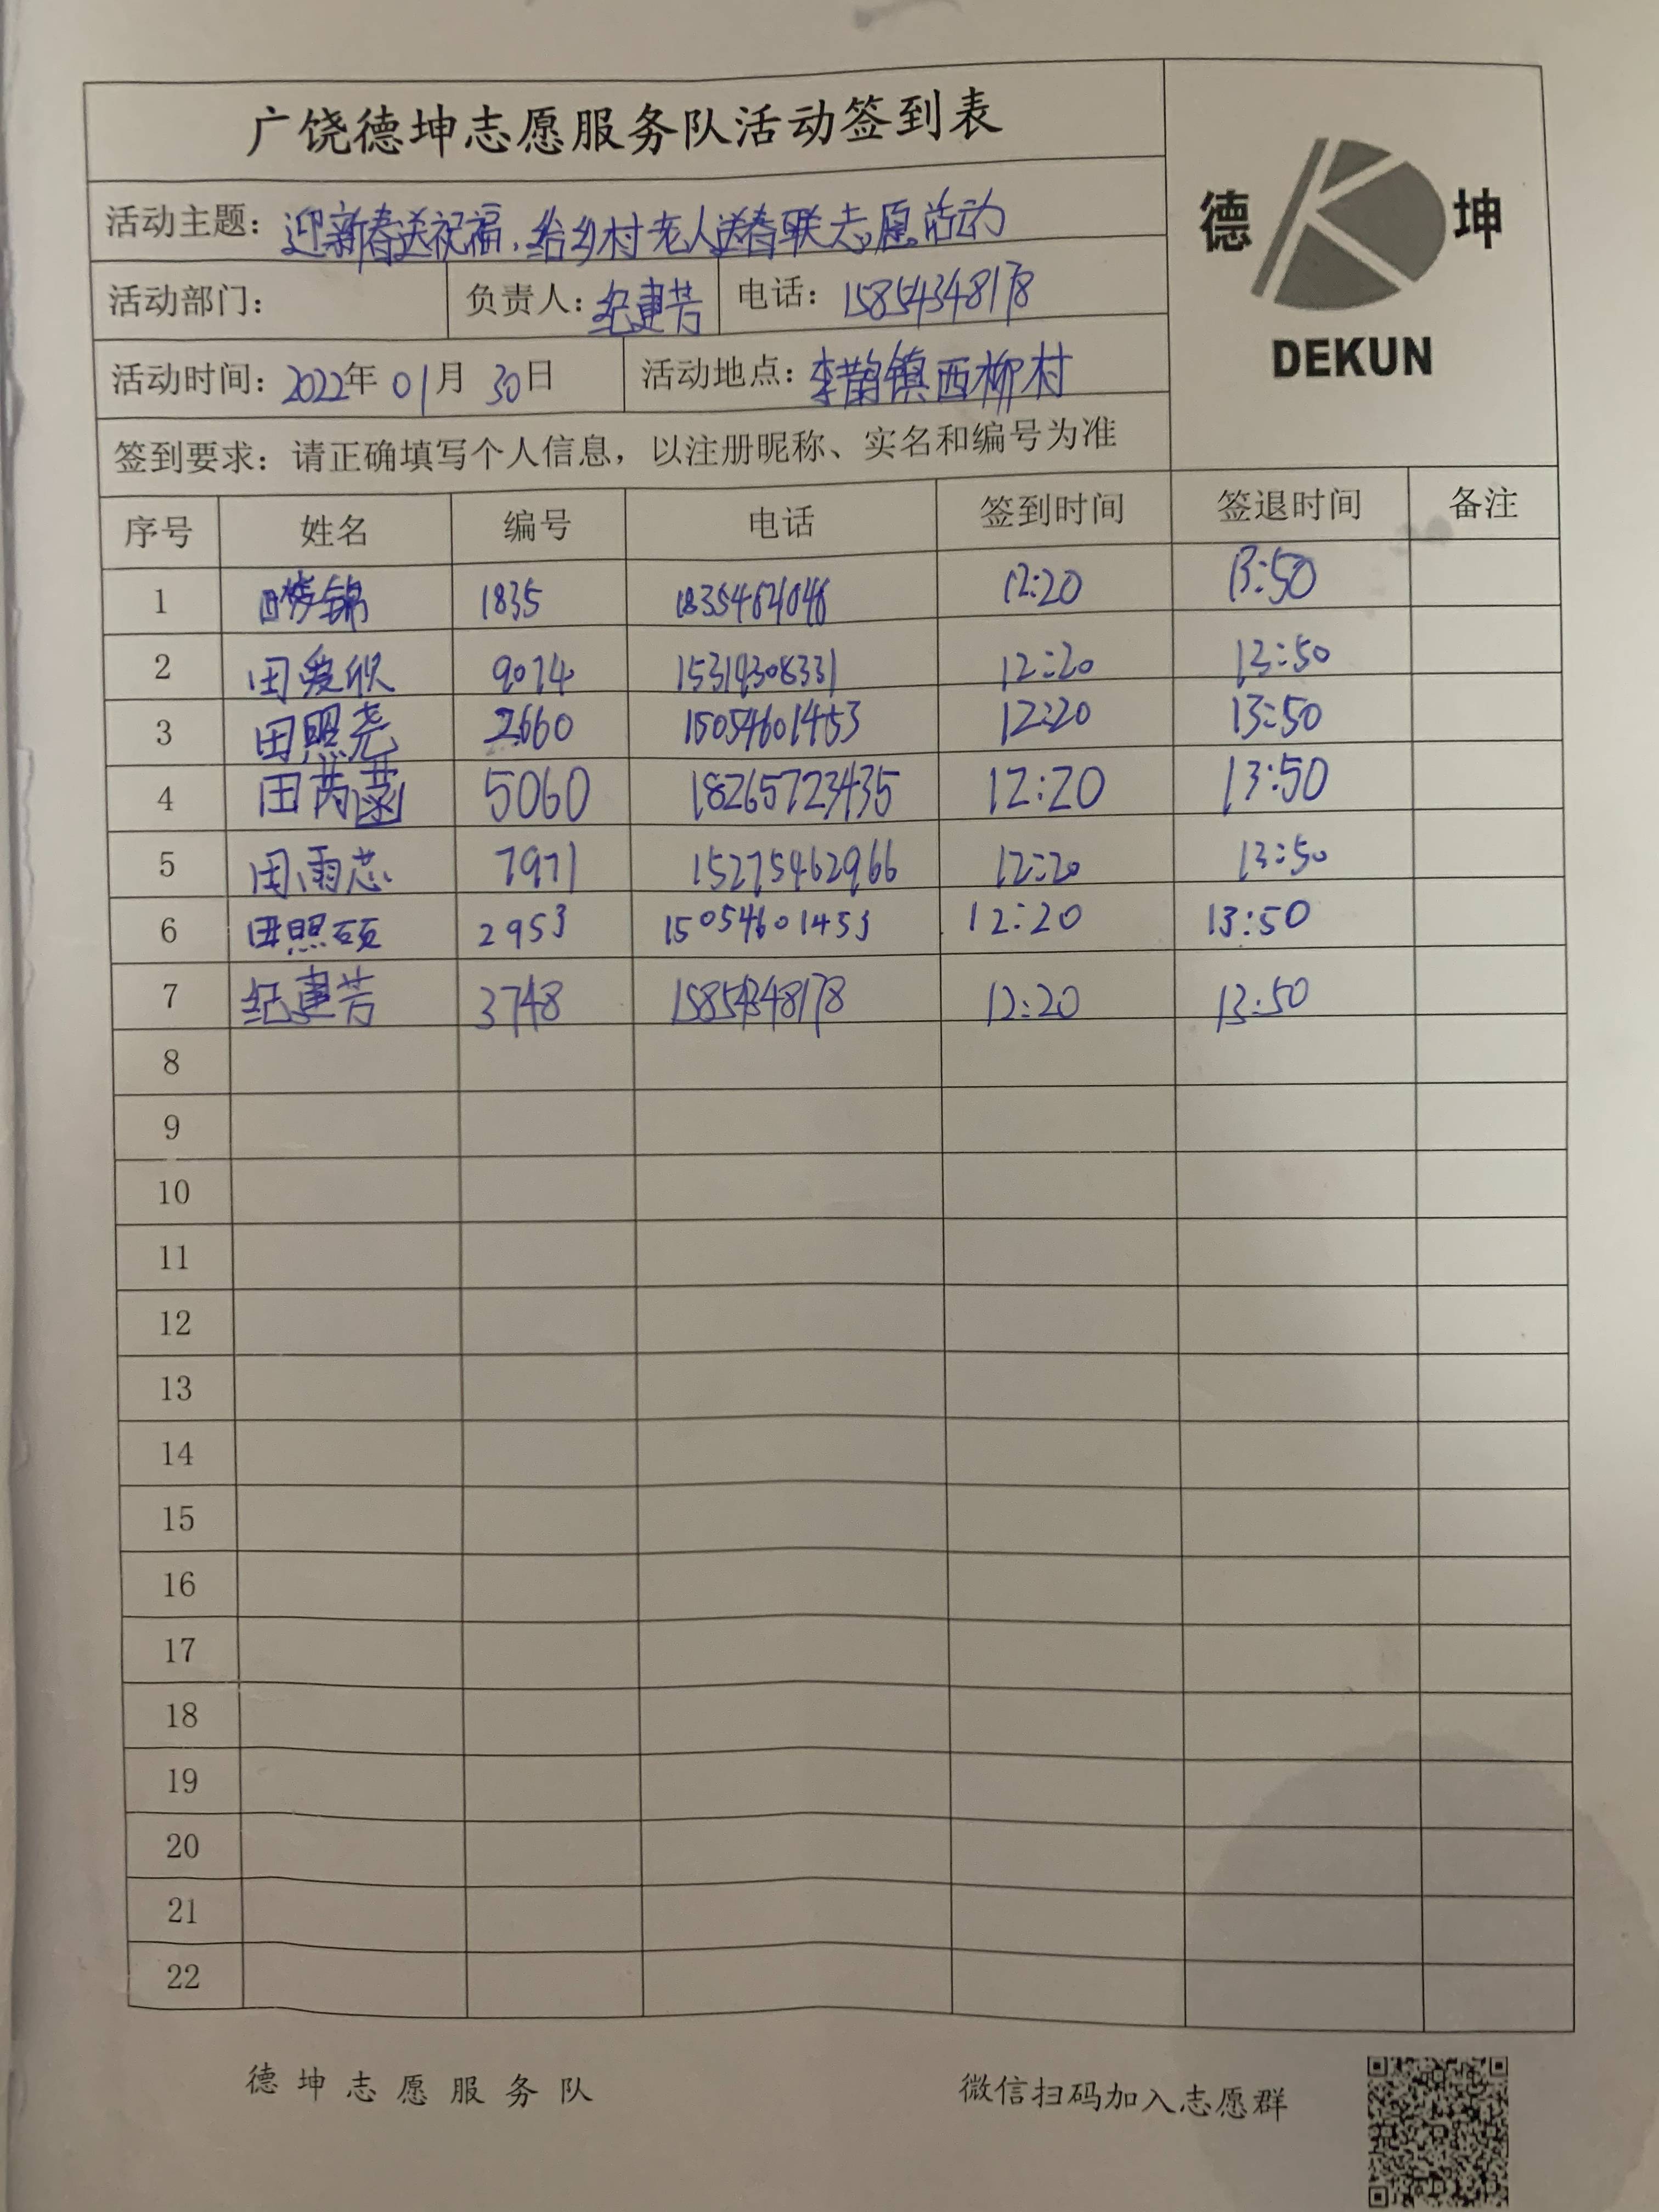 广饶德坤志愿服务队活动签到表
德 坤
DEKUN
活动主题：迎新春送祝福，给乡村老人送春联志愿活动
活动部门： 负责人：纪建芳 电话：15854348178
活动时间：2022年01月30日 活动地点：李鹊镇西柳村
签到要求：请正确填写个人信息，以注册昵称、实名和编号为准
序号 姓名 编号 电话 签到时间 签退时间 备注
1 田梦锦 1835 12:20 13:50
2 田爱欣 9074 15314308331 12:20 13:50
3 田照尧 2660 15054601453 12:20 13:50
4 田芮菡 5060 18265723435 12:20 13:50
5 田雨芯 7971 15275462966 12:20 13:50
6 田照硕 2953 15054601453 12:20 13:50
7 纪建芳 3748 15854348178 12:20 13:50
8
9
10
11
12
13
14
15
16
17
18
19
20
21
22
德坤志愿服务队 微信扫码加入志愿群